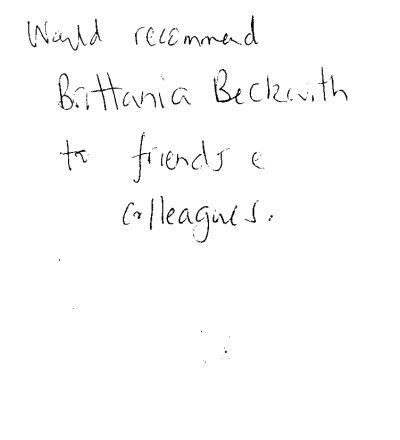 Would recommend
Brittania Beckwith
to friends &
colleagues.